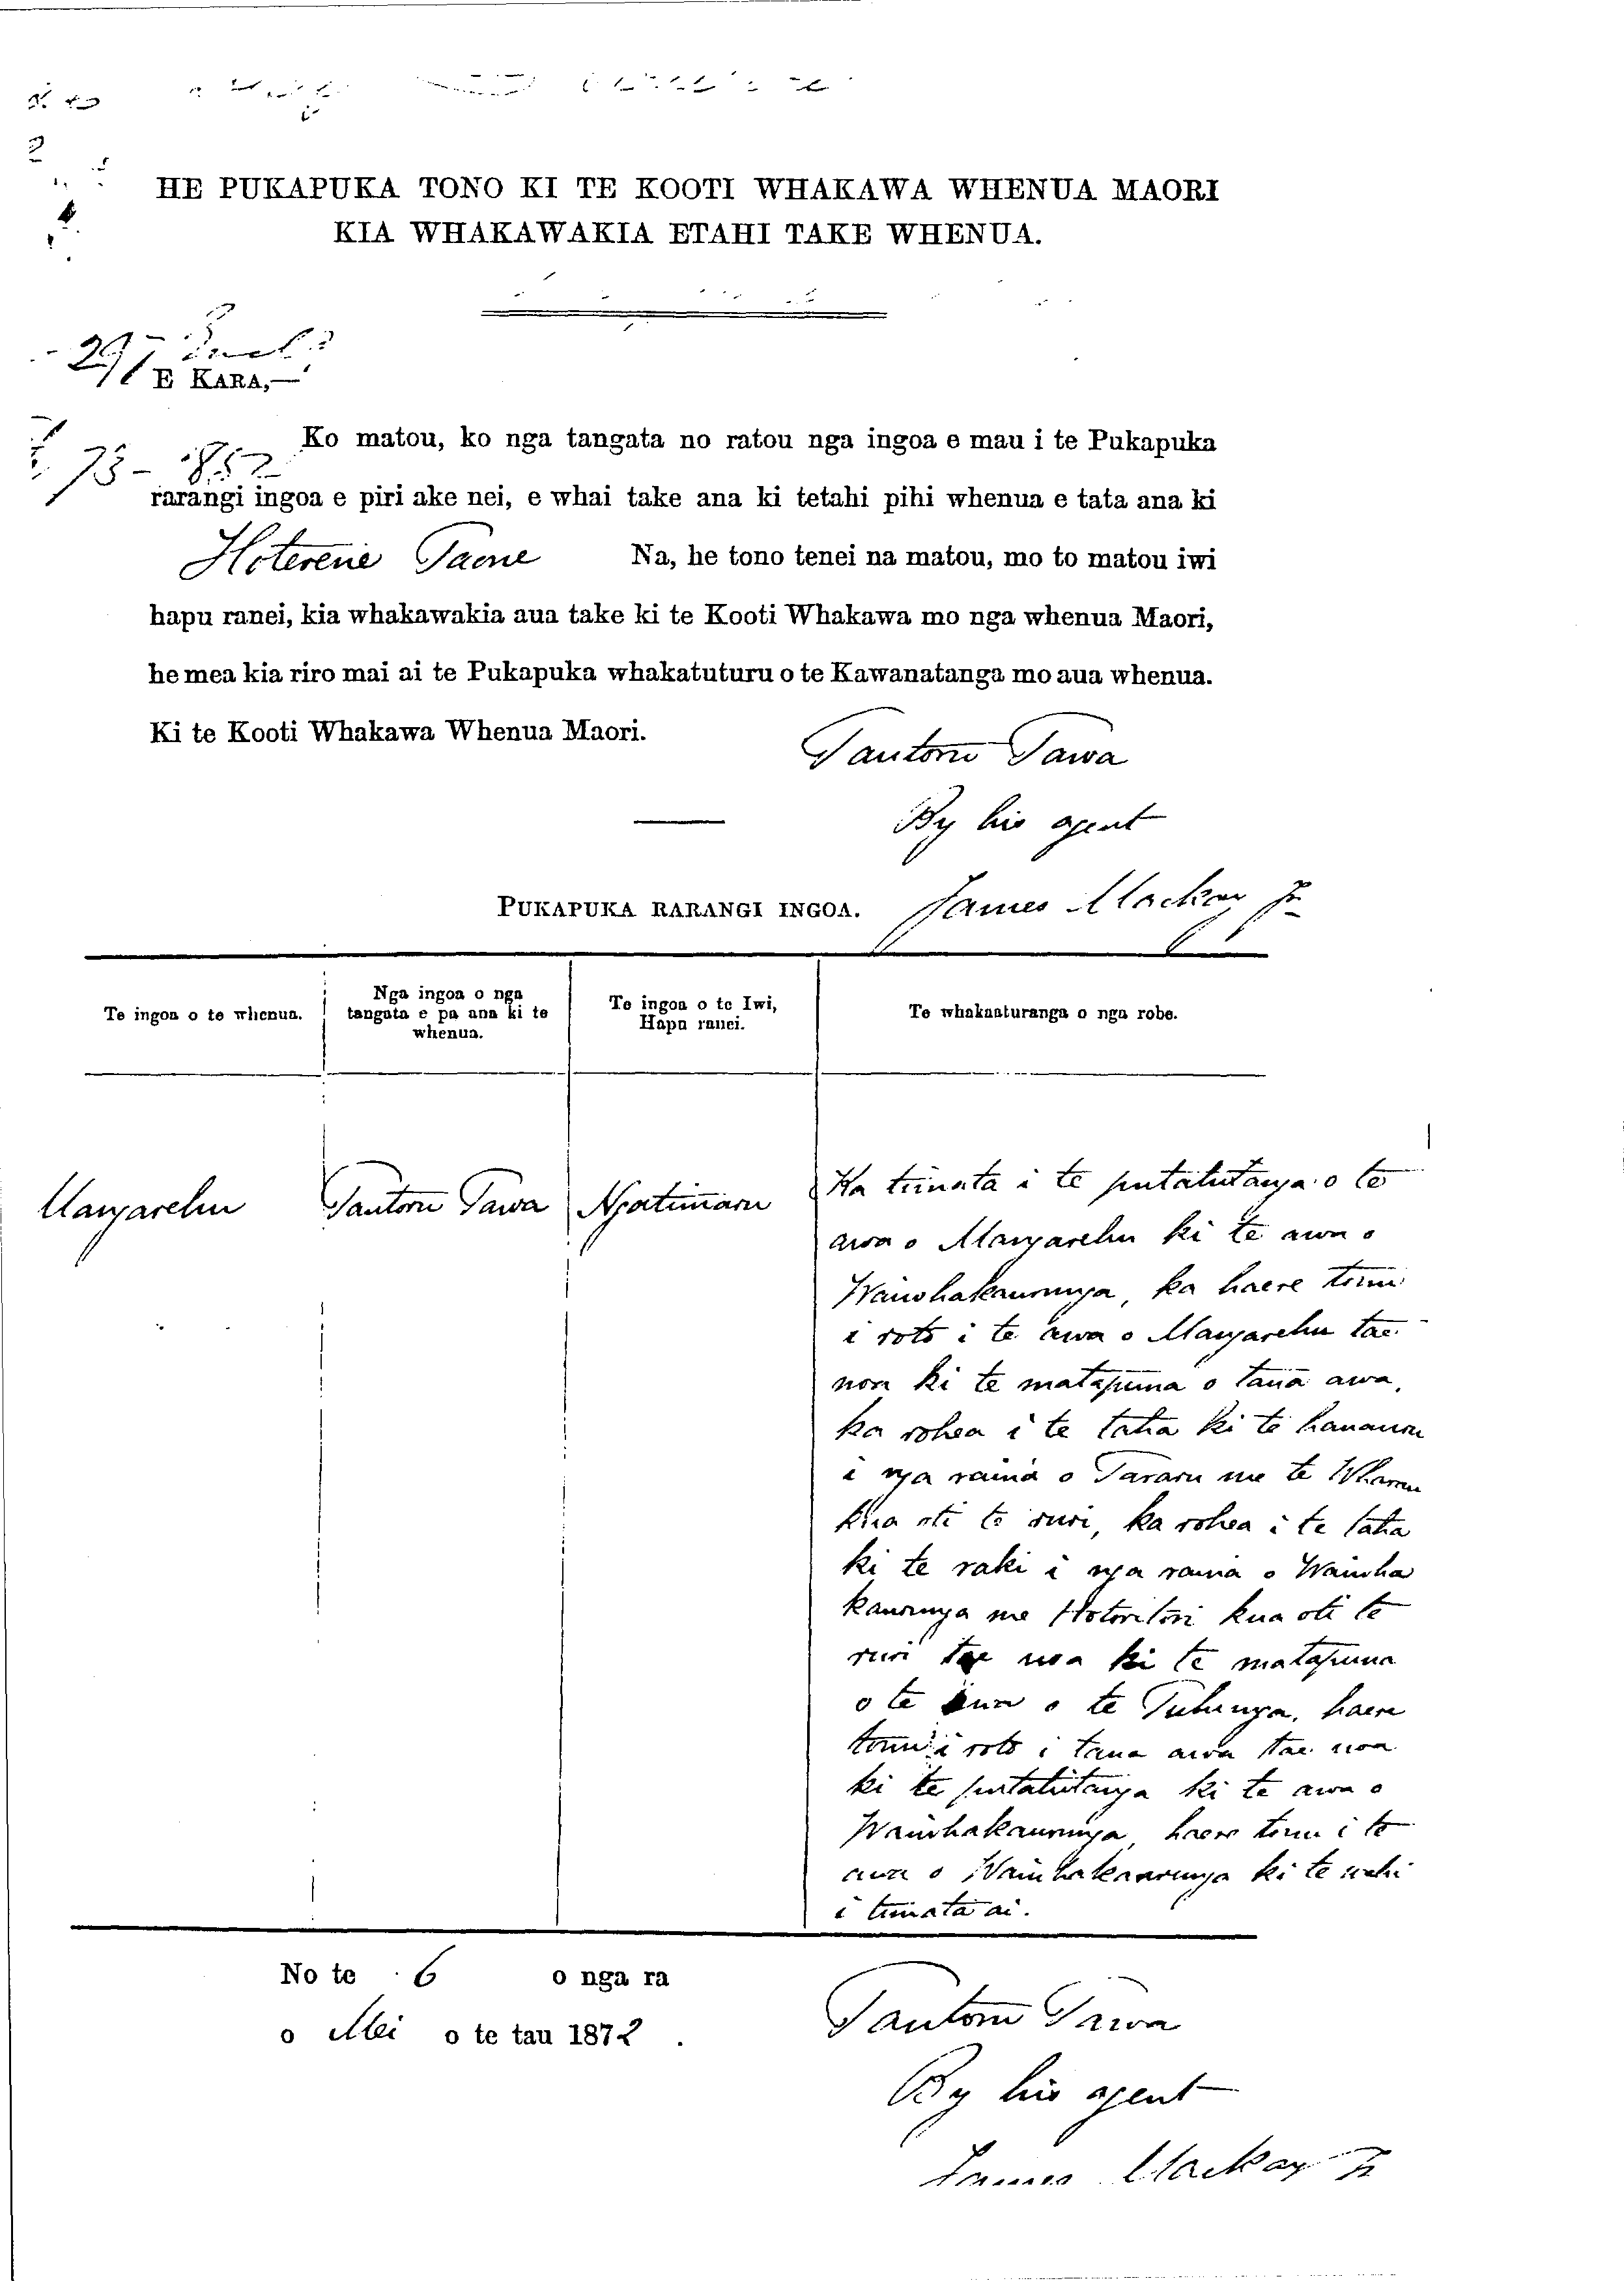 HE PUKAPUKA TONO KI TE KOOTI WHAKAWA WHENUA MAORI
KIA WHAKAWAKIA ETAHI TAKE WHENUA.
E KARA,—
Ko matou, ko nga tangata no ratou nga ingoa e mau i te Pukapuka
rarangi ingoa e piri ake nei, e whai take ana ki tetahi pihi whenua e tata ana ki
Hoterene Taene Na, he tono tenei na matou, mo to matou iwi
hapu ranei, kia whakawakia aua take ki te Kooti Whakawa mo nga whenua Maori,
he mea kia riro mai ai te Pukapuka whakatuturu o te Kawanatanga mo aua whenua.
Ki te Kooti Whakawa Whenua Maori.
Tautoru Tawa
By his agent
James Mackay Jr
PUKAPUKA RARANGI INGOA.
Te ingoa o te whenua.
Nga ingoa o nga
tangata e pa ana ki te
whenua.
Te ingoa o te Iwi,
Hapu ranei.
Te whakaaturanga o nga rohe.
Mangarehu
Tautoru Tawa
Ngatimaru
Ka timata i te putahitanga o te
awa o Mangarehu ki te awa o
Waiwhakaurunga, ka haere tonu
i roto i te awa o Mangarehu tae
noa ki te matapuna o taua awa,
ka rohea i te taha ki te hauauru
i nga raina o Tararu me te
kua oti te ruri, ka rohea i te taha
ki te raki i nga raina o Waiwha
kaurunga me Hotoritori kua oti te
ruri tae noa ki te matapuna
o te awa o te Tutunga, haere
tonu i roto i taua awa tae noa
ki te putahitanga ki te awa o
Waiwhakaurunga haere tonu i te
awa o Waiwhakaurunga ki te wahi
i timata ai.
No te 6 o nga ra
o Mei o te tau 1872.
Tautoru Tawa
By his agent
James Mackay Jr